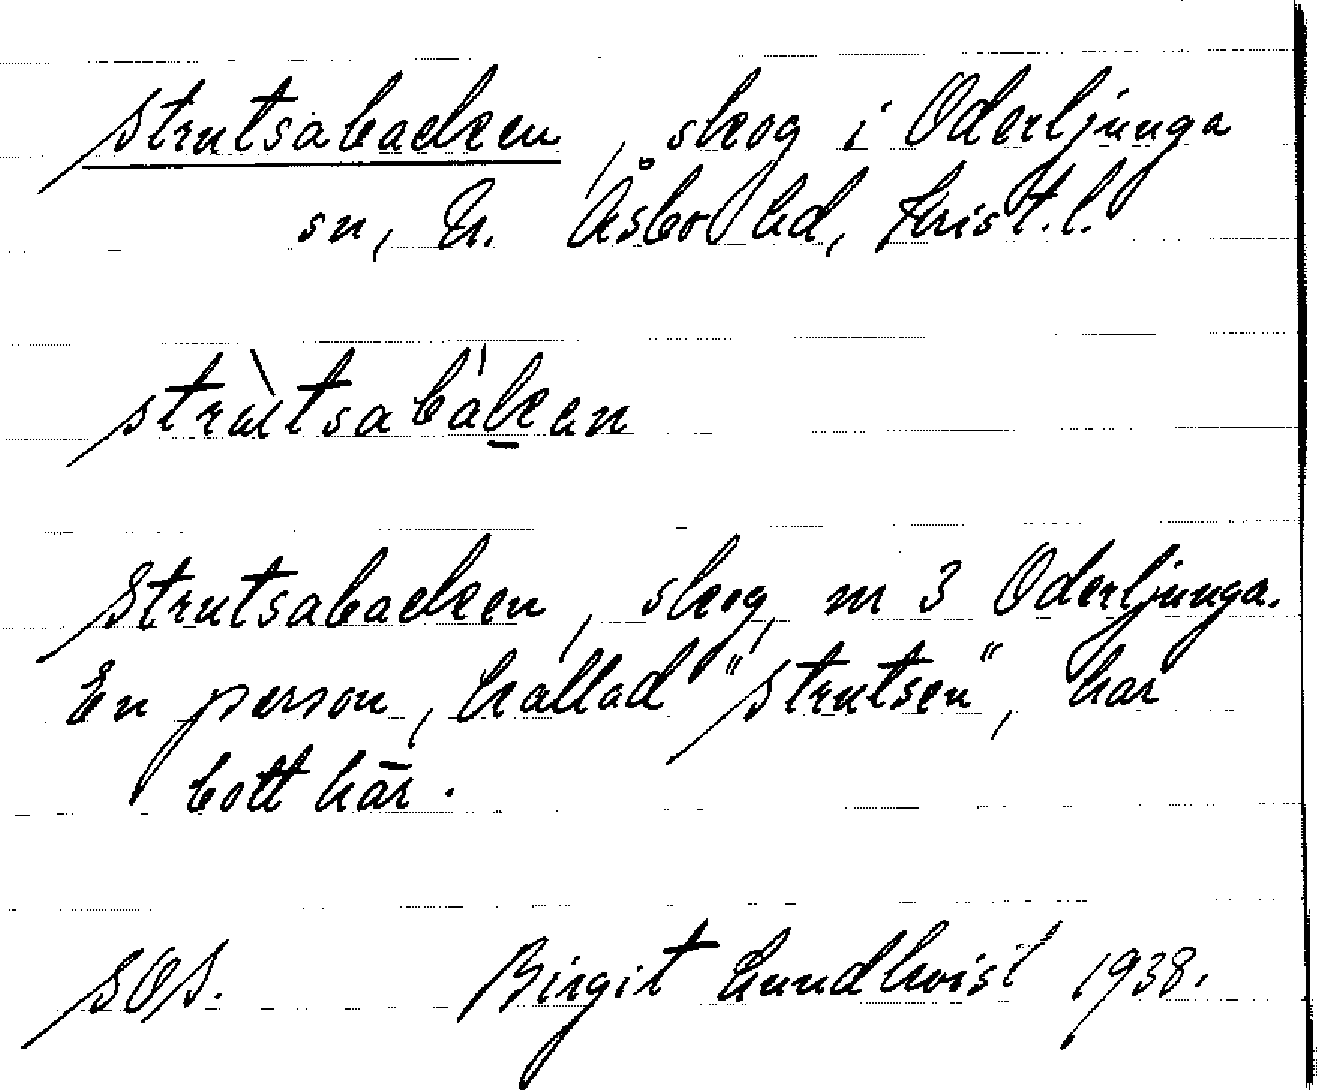 Strutsabacken, skog i Oderljunga
sn, N. Åsbo hd, Krist. l.
strùtsabákean
Strutsabacken, skog, nr 3 Oderljunga.
En person, kallad "Strutsen", har
bott här.
SOS. Birgit Lundkvist 1938.